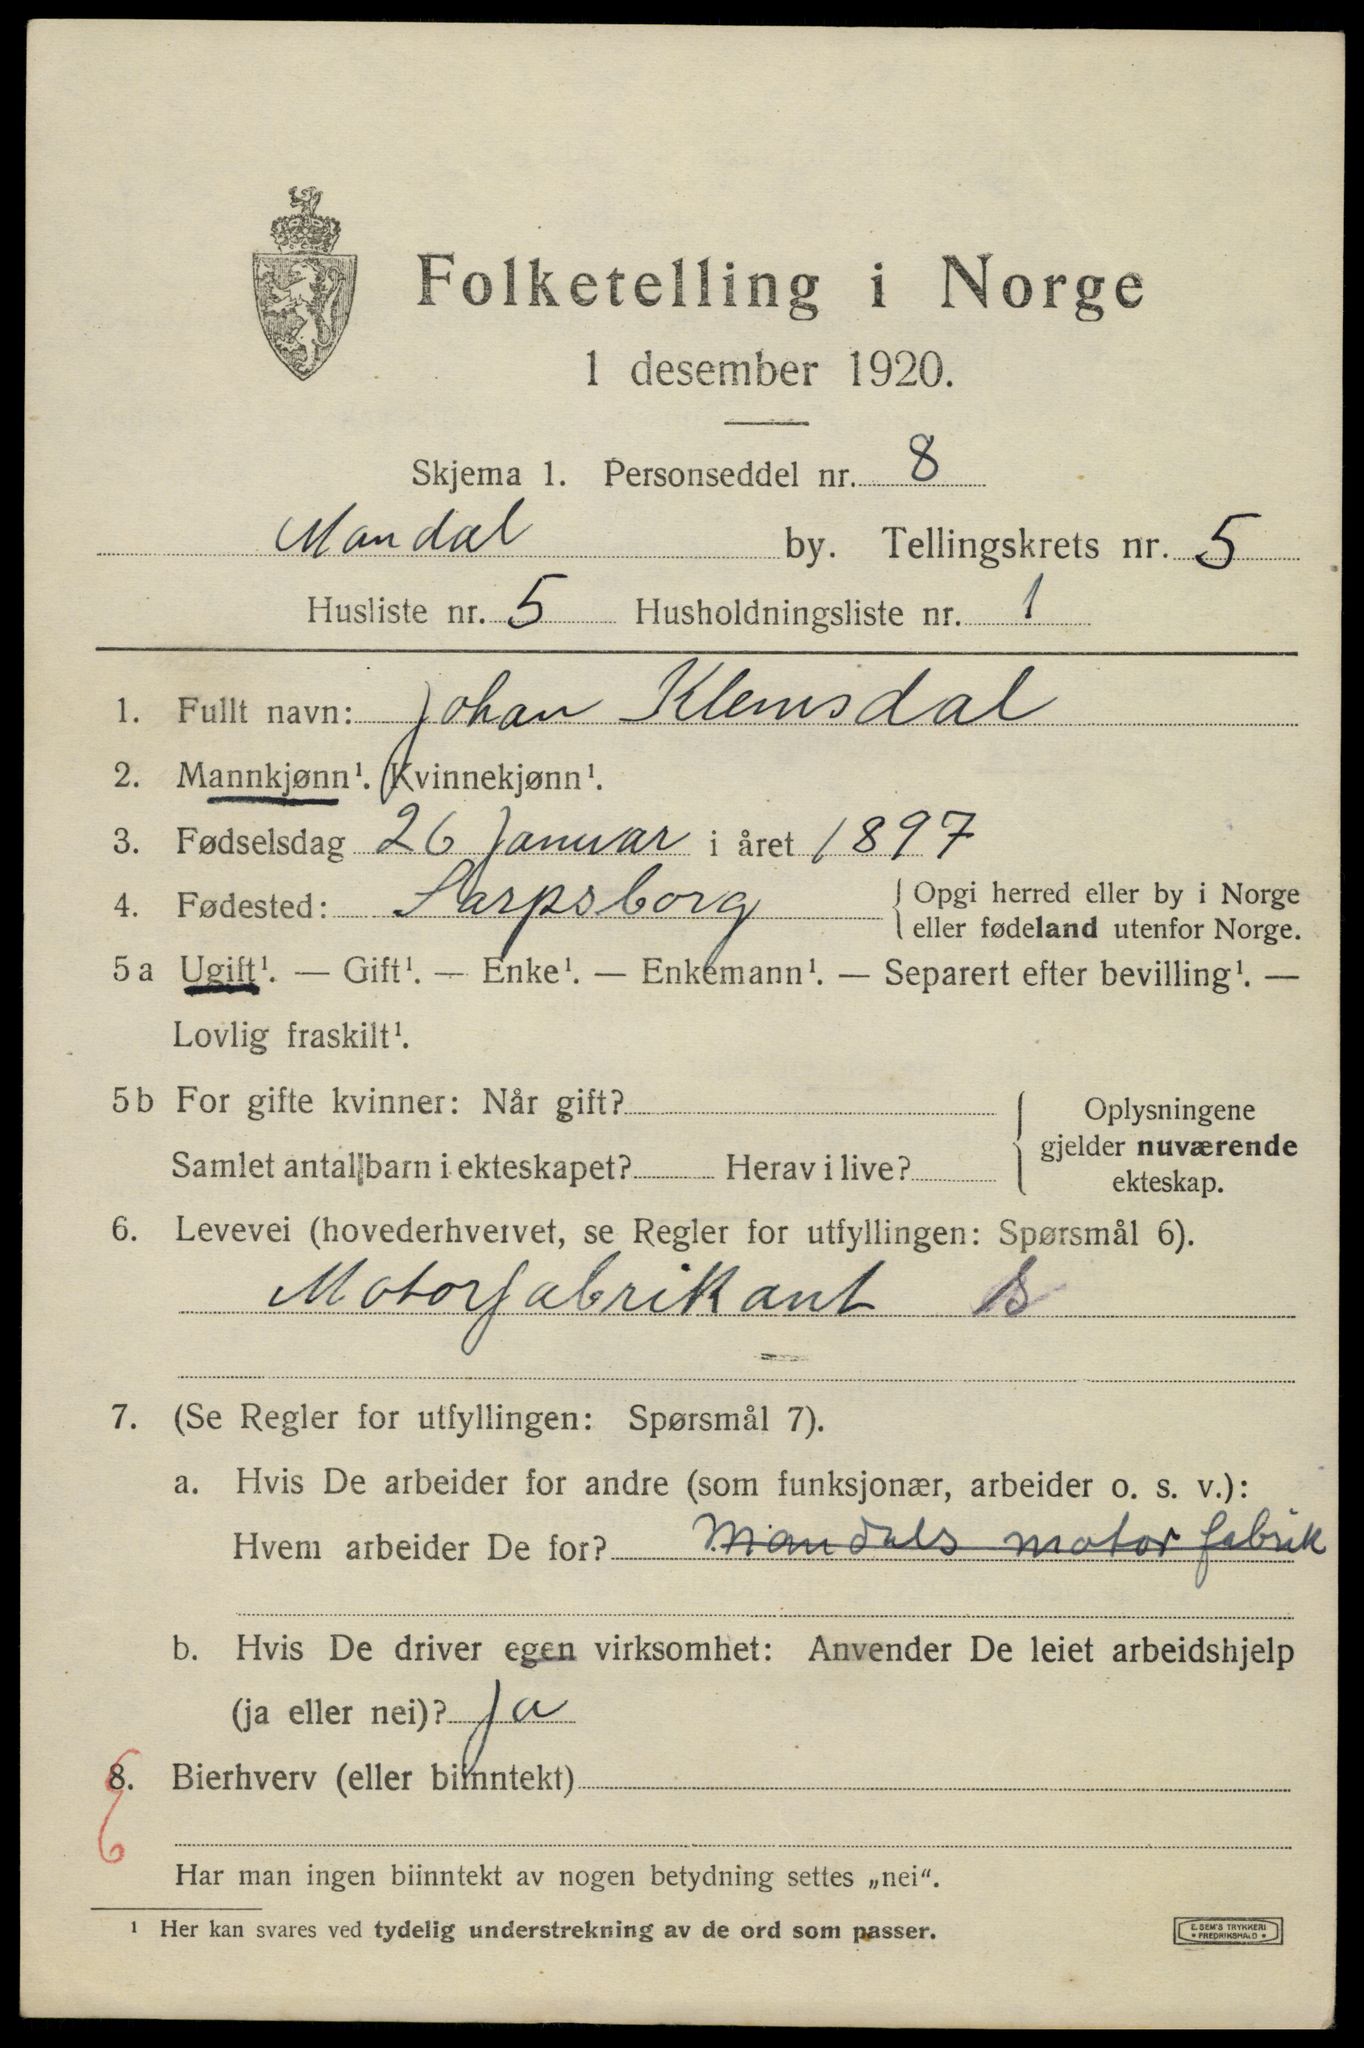 Folketelling i Norge
1 desember 1920.
Skjema 1. Personseddel nr. 8
Mandal by. Tellingskrets nr. 5
Husliste nr. 5 Husholdningsliste nr. 1
1. Fullt navn: Johan Klemsdal
2. Mannkjønn¹. Kvinnekjønn¹.
3. Fødselsdag 26 Januar i året 1897
4. Fødested: Sarpsborg { Opgi herred eller by i Norge
eller fødeland utenfor Norge.
5a Ugift¹. — Gift¹. — Enke¹. — Enkemann¹. — Separert efter bevilling¹. —
Lovlig fraskilt¹.
5b For gifte kvinner: Når gift?
Samlet antall barn i ekteskapet? Herav i live?
Oplysningene
gjelder nuværende
ekteskap.
6. Levevei (hovederhvervet, se Regler for utfyllingen: Spørsmål 6).
Motorfabrikant S
7. (Se Regler for utfyllingen: Spørsmål 7).
a. Hvis De arbeider for andre (som funksjonær, arbeider o. s. v.):
Hvem arbeider De for? Mandals motorfabrik
b. Hvis De driver egen virksomhet: Anvender De leiet arbeidshjelp
(ja eller nei)? Ja
8. Bierhverv (eller biinntekt)
6
Har man ingen biinntekt av nogen betydning settes „nei“.
¹ Her kan svares ved tydelig understrekning av de ord som passer.
E. SEM'S TRYKKERI
• FREDRIKSHALD •